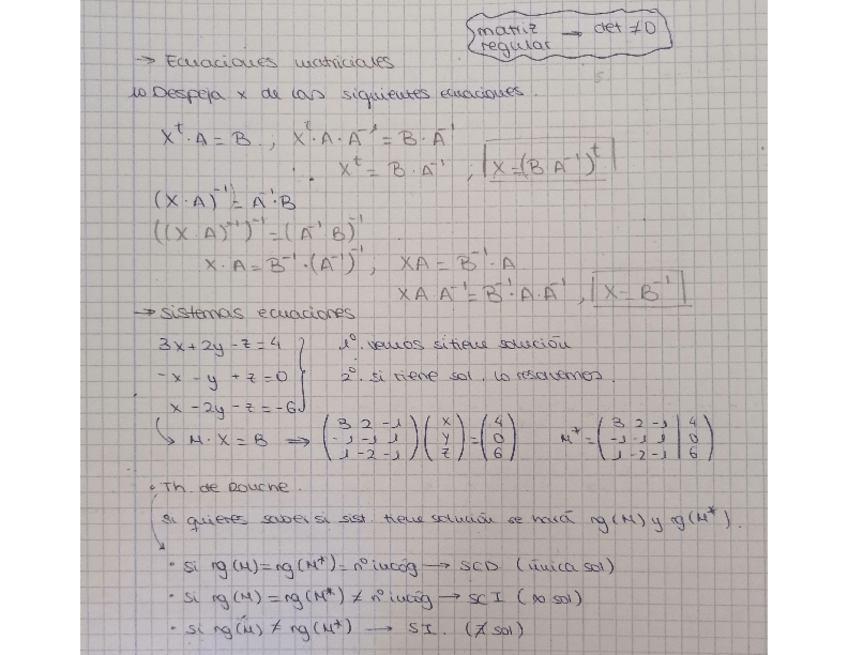 matriz regular → det ≠0
→ Ecuaciones matriciales
Despeja x de las siguientes ecuaciones.
Xᵗ·A = B ; Xᵗ·A·A⁻¹ = B·A⁻¹
Xᵗ = B·A⁻¹ ; X=(B A⁻¹)ᵗ
(X·A)⁻¹ = A⁻¹·B
((X A)⁻¹)⁻¹ = (A⁻¹ B)⁻¹
X·A = B⁻¹·(A⁻¹)⁻¹ ; XA = B⁻¹·A
XA A⁻¹ = B⁻¹·A·A⁻¹ , X = B⁻¹
→ Sistemas ecuaciones
3x + 2y - z = 4 1º. vemos si tiene solución
-x - y + z = 0 2º. si tiene sol. lo resolvemos.
x - 2y - z = -6
M·X = B ⇒ (3 2 -1 / -1 -1 1 / 1 -2 -1) (x / y / z) = (4 / 0 / 6) M* = (3 2 -1 | 4 / -1 -1 1 | 0 / 1 -2 -1 | 6)
• Th. de Rouche.
Si quieres saber si sist. tiene solución se hará rg(M) y rg(M*).
• Si rg(M) = rg(M*) = nº incóg → SCD (única sol)
• Si rg(M) = rg(M*) ≠ nº incóg → SCI (∞ sol)
• Si rg(M) ≠ rg(M*) → SI. (∄ sol)